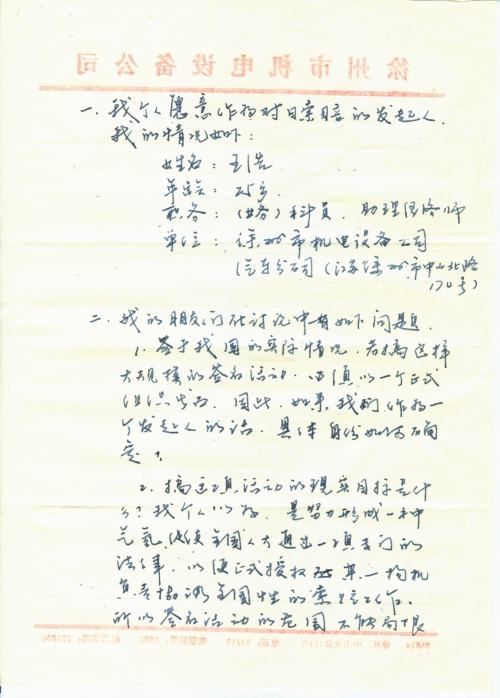 徐州市机电设备公司
一、我个人愿意作为对日索赔的发起人.
我的情况如下:
姓名: 王浩
年龄: 25岁
职务: (业务)科员、助理经济师
单位: 徐州市机电设备公司
汽车分公司(江苏徐州市中山北路
174号)
二、我的朋友们在讨论中有如下问题.
1. 鉴于我国的实际情况, 若搞这样
大规模的签名活动, 必须以一个正式
组织出面. 因此, 如果我们作为一
个发起人的话, 具体身份如何确
定?
2. 搞这项活动的现实目标是什
么? 我个人以为, 是努力形成一种
气氛, 促使全国人大通过一项专门的
法律, 以便正式授权某一构机
负责协调全国性的索赔工作.
所以签名活动的范围不能局限